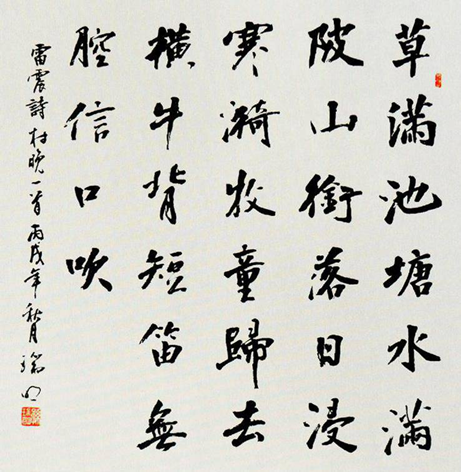 草滿池塘水滿
陂山銜落日浸
寒漪牧童歸去
橫牛背短笛無
腔信口吹
雷震詩村晚一首丙戌年秋月瑞